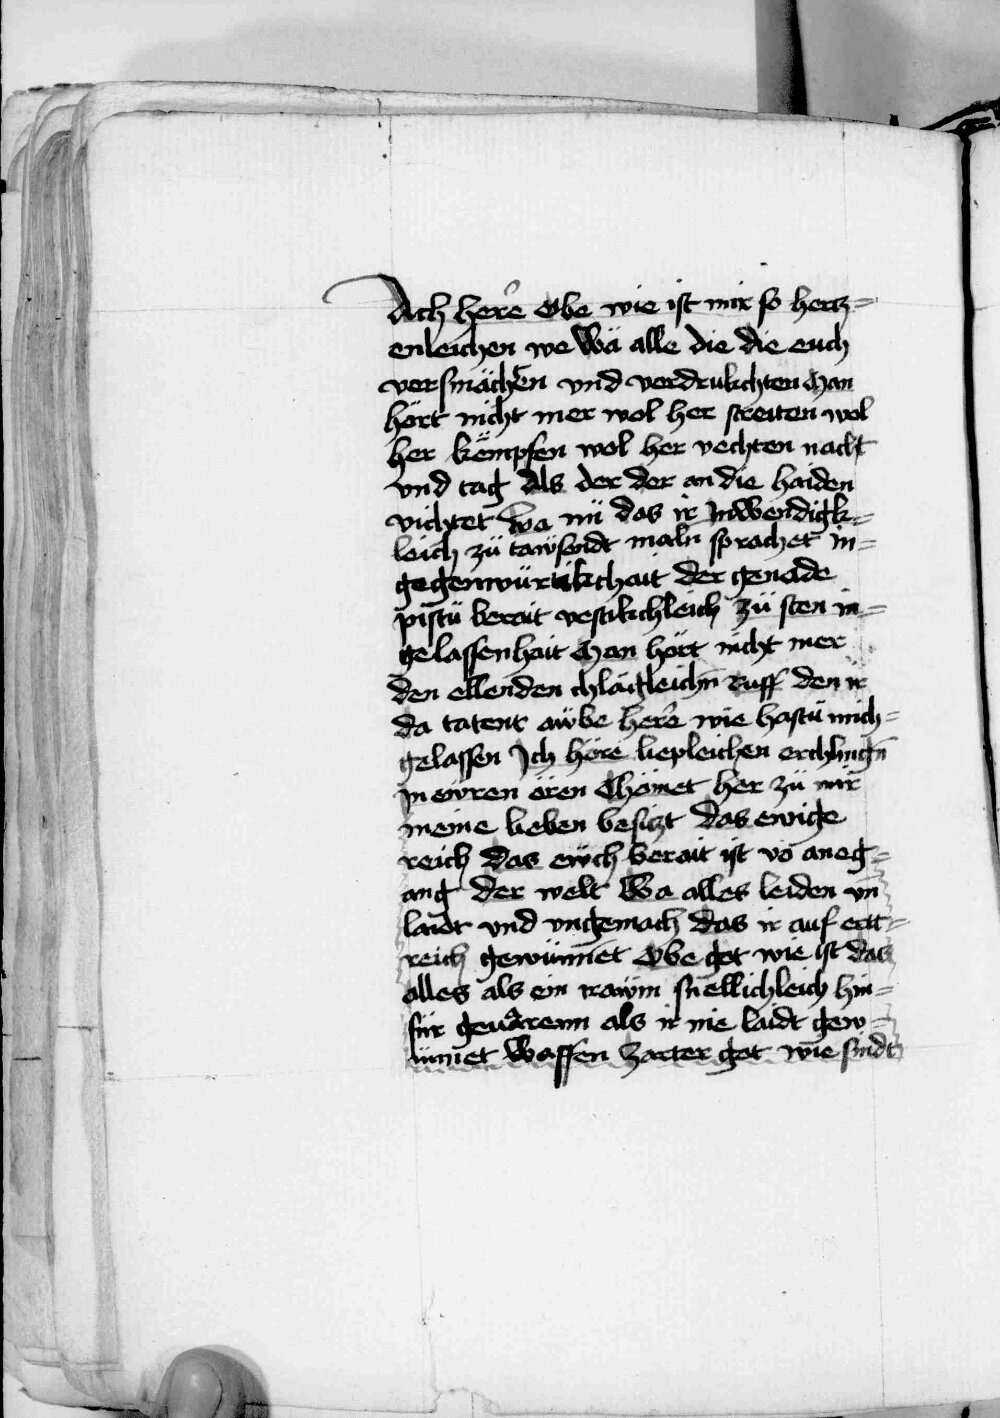 Ach here Obe wie ist mir so hertz=
enleichen we Wa alle die die euch
versmächen vnd verdrukchten Man
hört nicht mer wol her streiten wol
her kempfen wol her vechten nacht
vnd tag Als der der an die haiden
vichtet Wa nü das ir Inwendigk=
leich zü tawsendt maln sprachet in=
gegenwürtikchait der genade
pistü berait vestikchleich zü sten in=
gelassenhait Man hört nicht mer
den ellenden chlägleichn ruff den ir
da tatent awbe here wie hastü mich=
gelassen Ich höre liepleichen erchlingn
In ewren ören Chömet her zü mir
meine lieben besitzt das ewige
reich das ewch berait ist vō aneg=
ang der welt Wa alles leiden vn̄
laidt vnd vngemach das ir auf ertt=
reich gewünnet Obe got wie ist das
alles als ein trawm snellichleich hin=
für geuarenn als ir nie laidt gew=
ünnet Waffen zarter got wie sindt